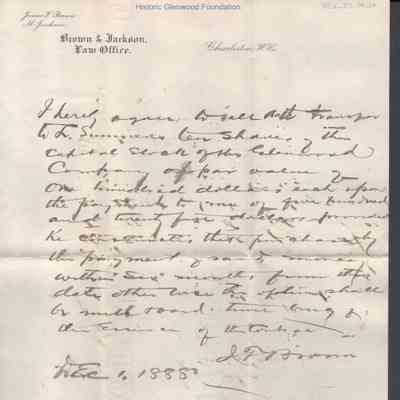 Historic Glenwood Foundation
James F. Brown
M. Jackson
Brown & Jackson,
Law Office.
Charleston, W.Va.
I hereby agree to sell and transfer
to L. Summers ten shares of the
capital stock of the Glenwood
Company of par value of
One hundred dollars each upon
the payment to me of five hundred
and twenty five dollars provided
he consummates this purchase by
the payment of said money
within six months from this
date other wise this option shall
be null & void: time being of
the essence of the contract
J F Brown
Dec 1, 1888